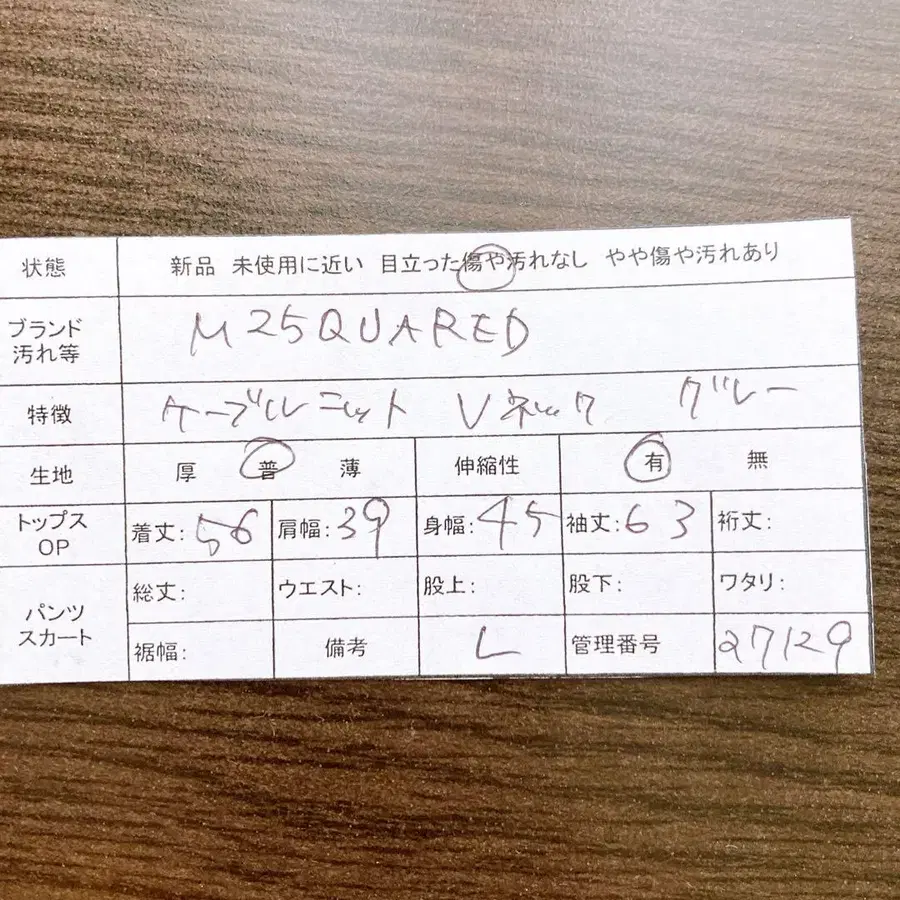 状態 新品 未使用に近い 目立った傷や汚れなし やや傷や汚れあり
ブランド
汚れ等
M25QUARED
特徴 ケーブルニット Vネック グレー
生地 厚 普 薄 伸縮性 有 無
トップス
OP
着丈:56 肩幅:39 身幅:45 袖丈:63 裄丈:
パンツ
スカート
総丈: ウエスト: 股上: 股下: ワタリ:
裾幅: 備考 L 管理番号 27129